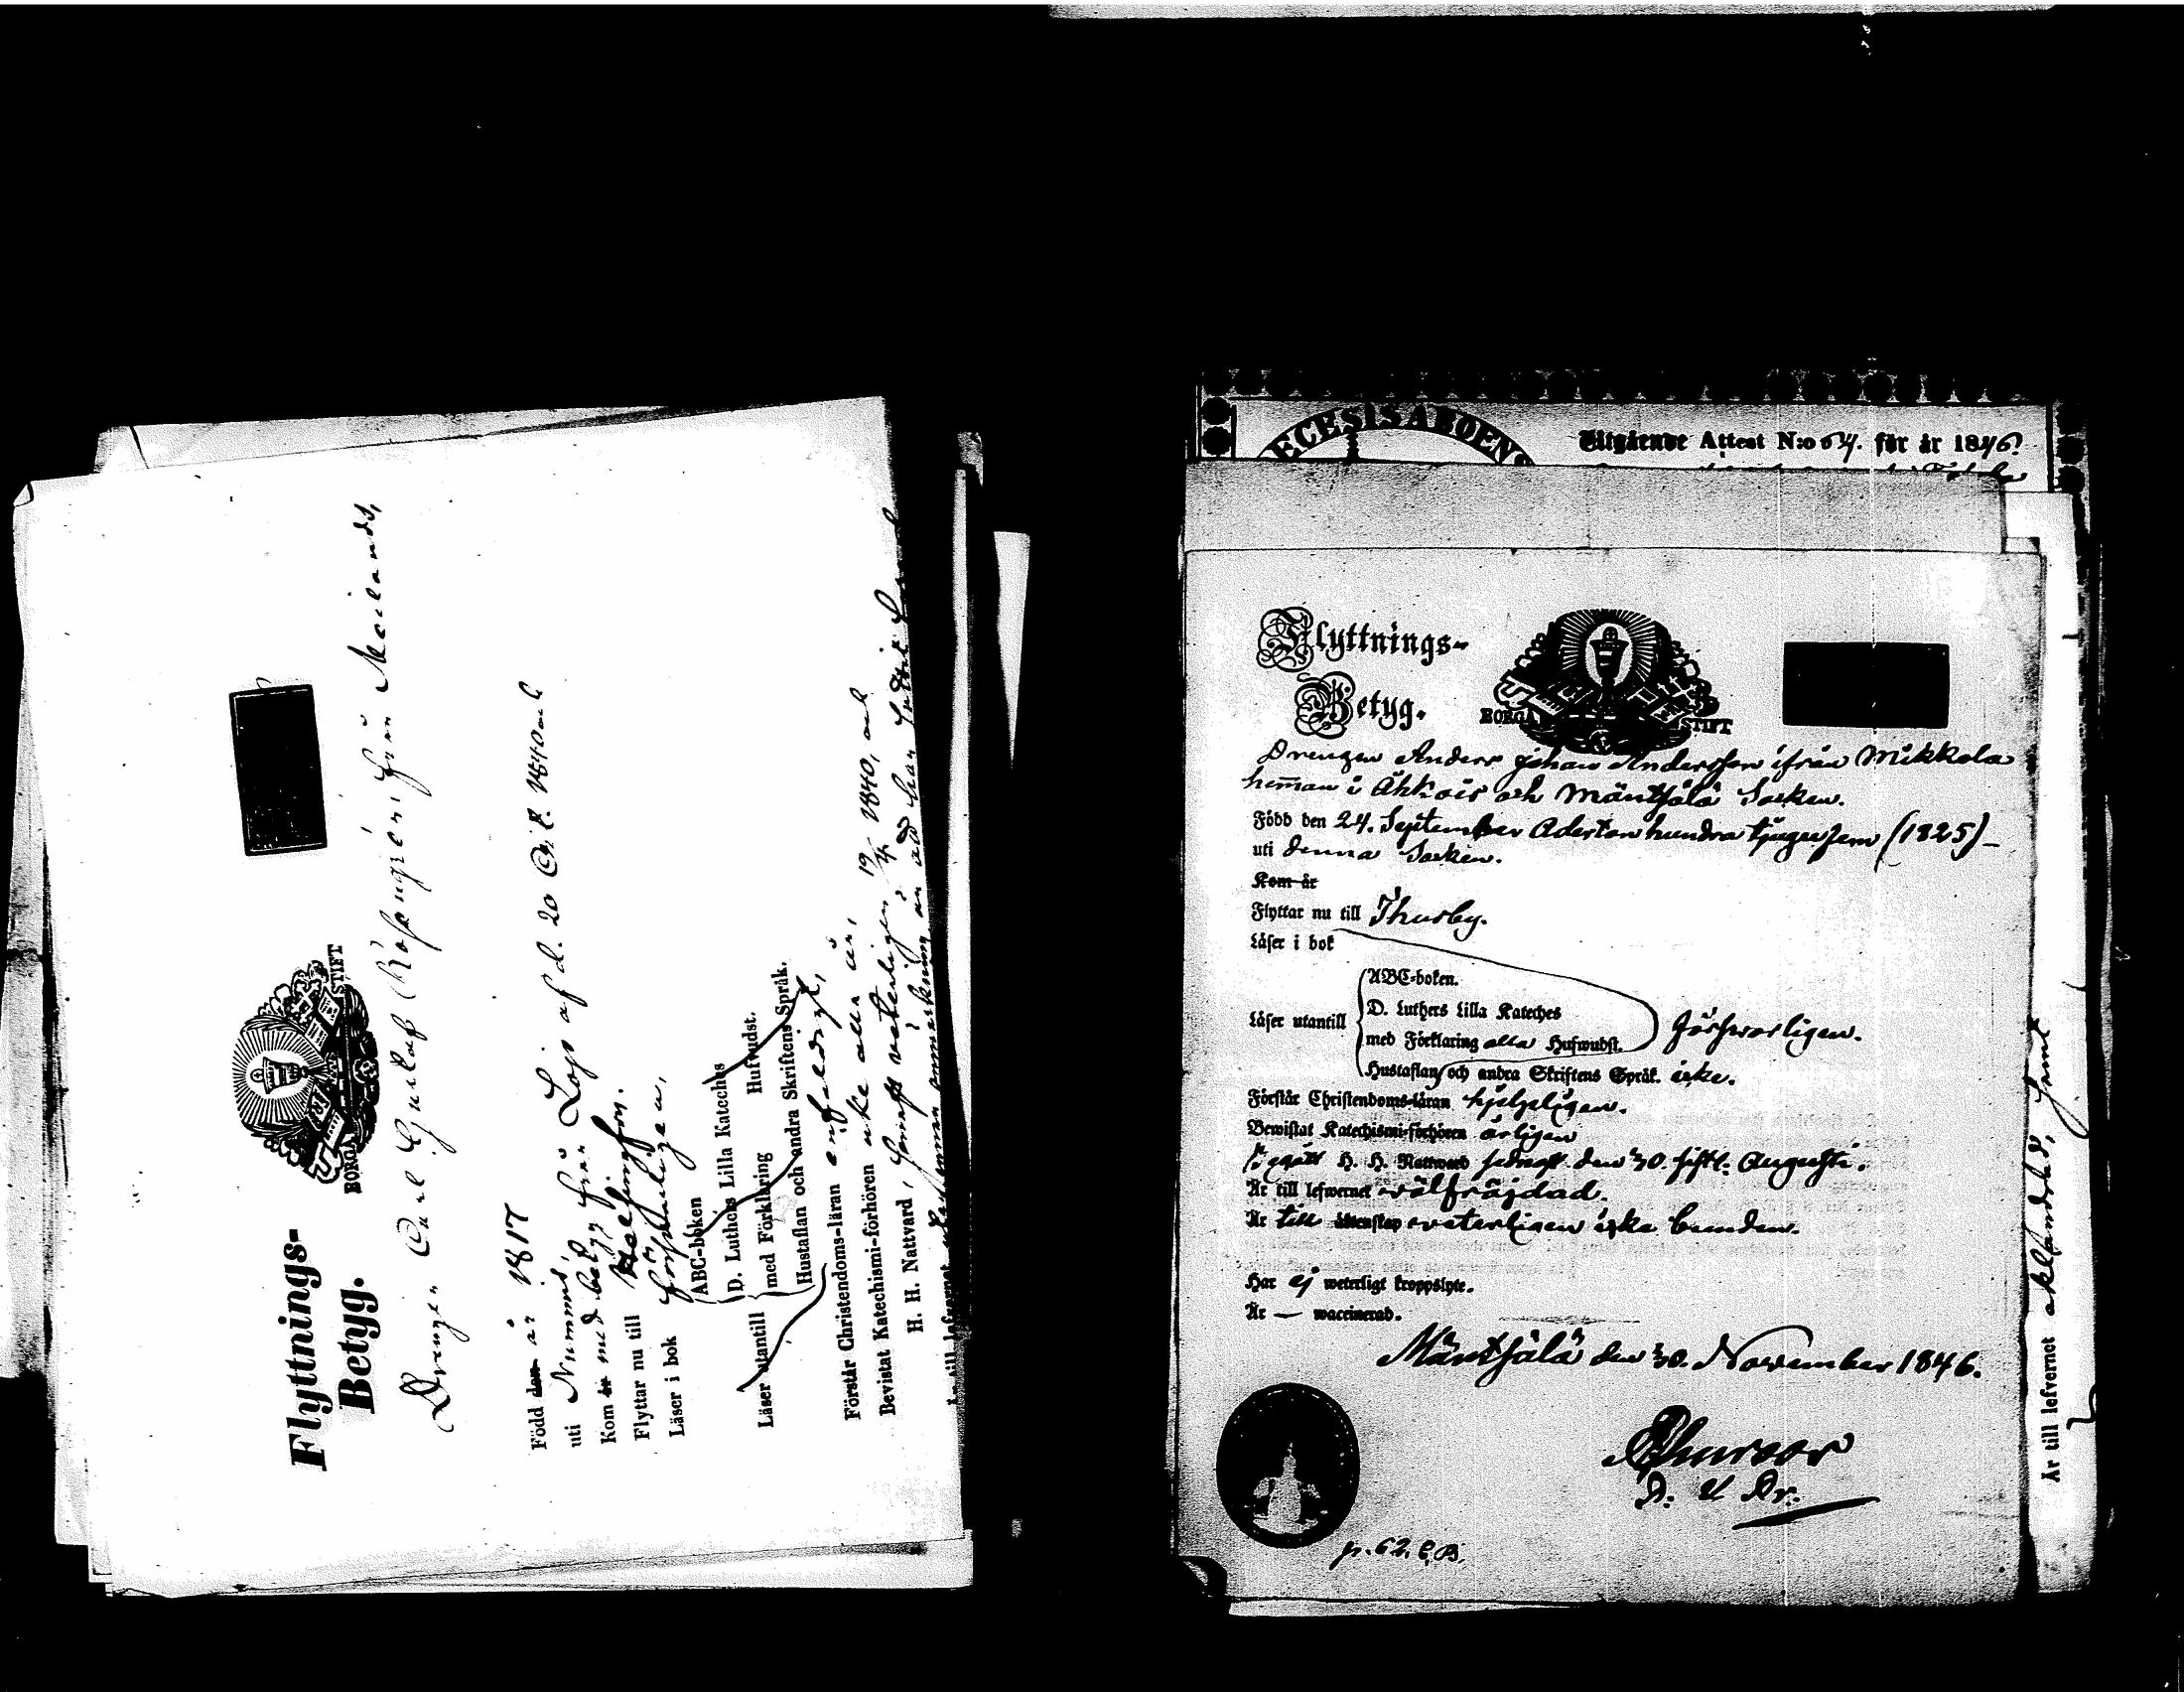 Flyttnings-
Betyg.
BORGÅ STIFT
Drengen Carl Gustaf från Meilands,
Född den år 1817
uti Nummis,
Kom år med betyg från Lojo af d. 20 1840 och
Flyttar nu till Helsingfors.
Läser i bok försvarligen,
ABC-boken
Läser utantill D. Luthers Lilla Kateches
med Förklaring Hufvudst.
Hustaflan och andra Skriftens Språk.
Förstår Christendoms-läran enfaldigt,
Bevistat Katechismi-förhören icke alla år,
H. H. Nattvard, senast veterligen 19/4 1840, och
Är till lefvernet
DIECESIS ABOENS
Utgående Attest N:o 64. för år 1846
Flyttnings-
Betyg.
BORGÅ STIFT
Drengen Anders Johan Andersson ifrån Mikkola
heman i och Mäntsälä Socken.
Född den 24. September Aderton hundra tjugufem (1825)
uti denna Socken.
Kom år
Flyttar nu till Thusby.
Läser i bok
ABC-boken.
Läser utantill D. Luthers Lilla Kateches
med Förklaring alla Hufwudst. försvarligen.
Hustaflan och andra Skriftens Språk. icke.
Förstår Christendoms-läran hjelpligen.
Bewistat Katechismi-förhören årligen
Begått H. H. Nattward sednast den 30. sistl. Augusti.
Är till lefwernet välfräjdad.
Är till äktenskap veterligen icke bunden.
Har ej weterligt kroppslyte.
Är — waccinerad.
Mäntsälä den 30. November 1846.
p. 62. C.B.
Är till lefvernet oklandrad, samt